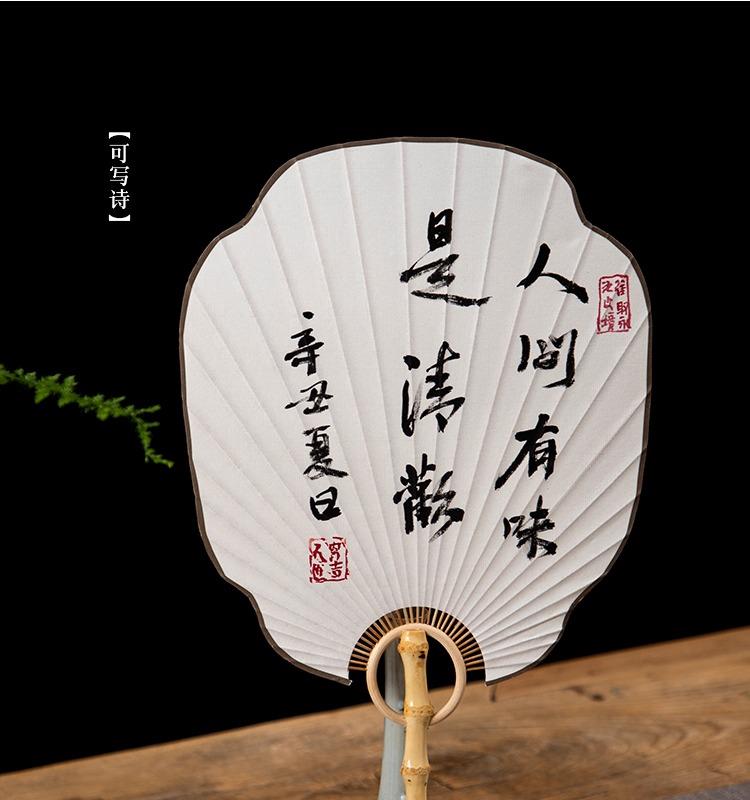 【可写诗】
人间有味
是清歡
辛丑夏日